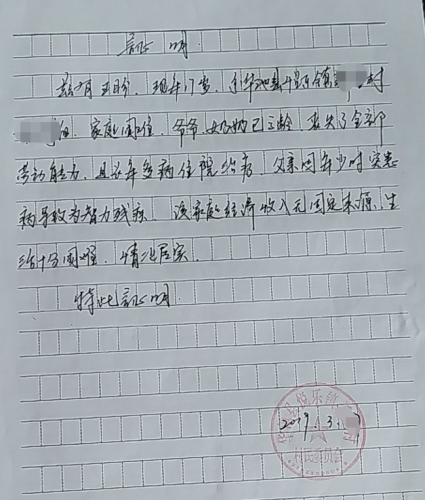 证明
兹有 现年17岁，华池县悦乐镇 村
组，家庭困难，爷爷、奶奶已高龄，丧失了全部
劳动能力，且长年多病住院治疗，父亲因年少时突患
病导致为智力残疾。该家庭经济收入无固定来源，生
活十分困难，情况属实。
特此证明。
2019.3.
村民委员会